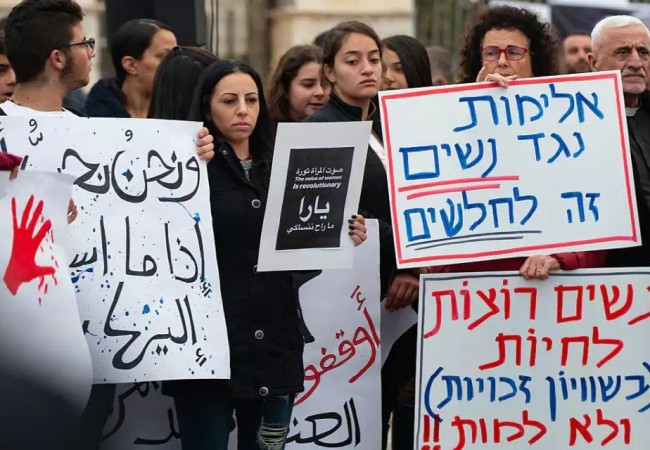 ونحنُ نحبُّ
إذا ما اس
إليها
صوت المرأة ثورة
The voice of women
Is revolutionary
يارا
ما راح ننساكي
أوقفوا
العن
אלימות
נגד נשים
זה לחלשים
נשים רוצות
לחיות
(בשוויון זכויות)
ולא למות!!